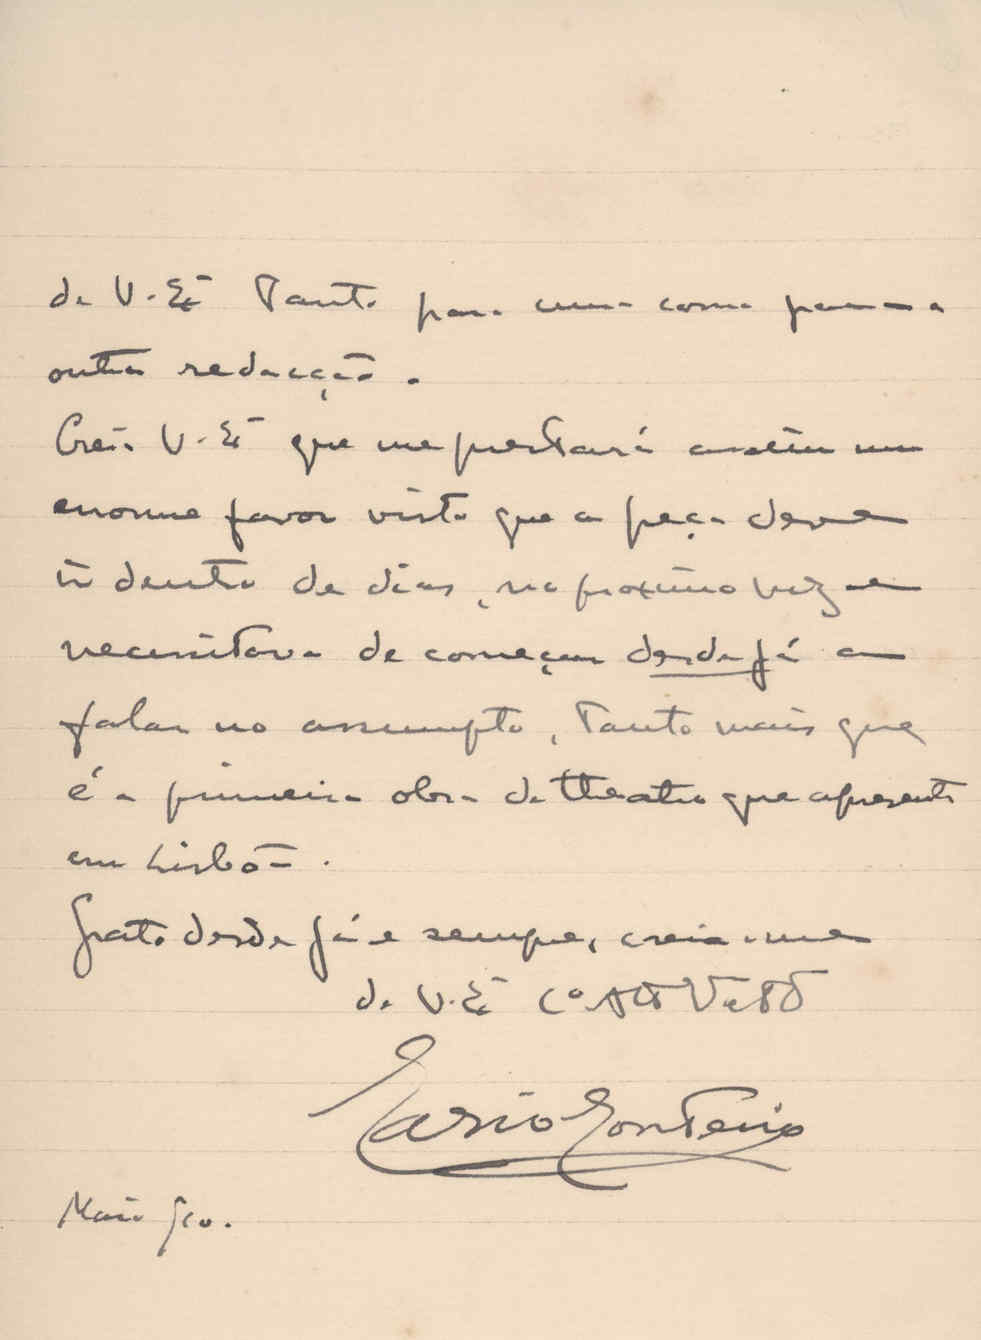 de V. Exª Tanto para uma como para a
outra redacção.
Creia V. Exª que me prestará assim um
enorme favor visto que a peça deve
ir dentro de dias, no proximo mez e
necessitava de começar desde já a
falar no assumpto, tanto mais que
é a primeira obra de theatro que apresento
em Lisbôa.
Grato desde já e sempre, creia-me
de V. Exª Cº Attº Vdº
Mario Monteiro
Maio